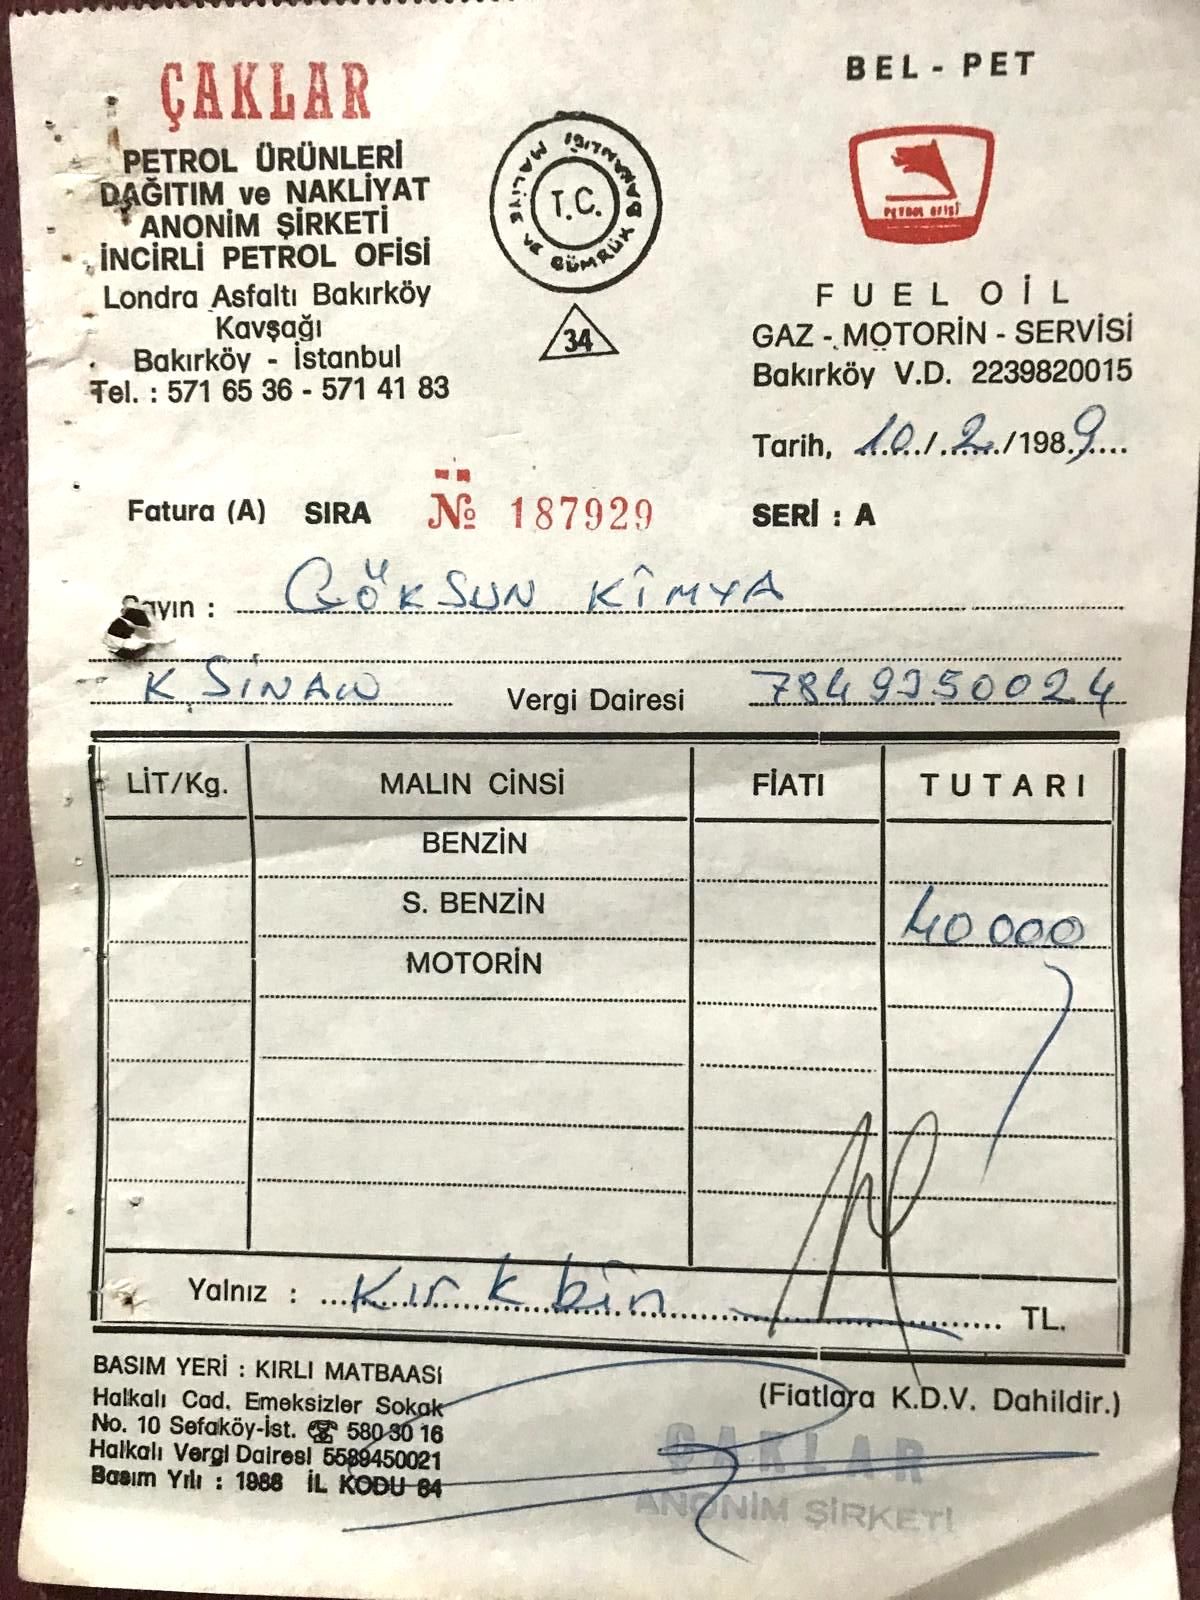 ÇAKLAR
PETROL ÜRÜNLERİ
DAĞITIM ve NAKLİYAT
ANONİM ŞİRKETİ
İNCİRLİ PETROL OFİSİ
Londra Asfaltı Bakırköy
Kavşağı
Bakırköy - İstanbul
Tel. : 571 65 36 - 571 41 83
MALİYE VE GÜMRÜK BAKANLIĞI
T.C.
34
BEL - PET
PETROL OFİSİ
FUEL OİL
GAZ - MOTORİN - SERVİSİ
Bakırköy V.D. 2239820015
Tarih, 10 / 2 / 1989
Fatura (A) SIRA № 187929 SERİ : A
Sayın : GÖKSUN KİMYA
K SİNAN Vergi Dairesi 7849350024
LİT/Kg. MALIN CİNSİ FİATI TUTARI
BENZİN
S. BENZİN 40 000
MOTORİN
Yalnız : Kırk bin TL.
BASIM YERİ : KIRLI MATBAASI
Halkalı Cad. Emeksizler Sokak
No. 10 Sefaköy-İst. ☎ 580 30 16
Halkalı Vergi Dairesi 5589450021
Basım Yılı : 1988 İL KODU 34
(Fiatlara K.D.V. Dahildir.)
ÇAKLAR
ANONİM ŞİRKETİ